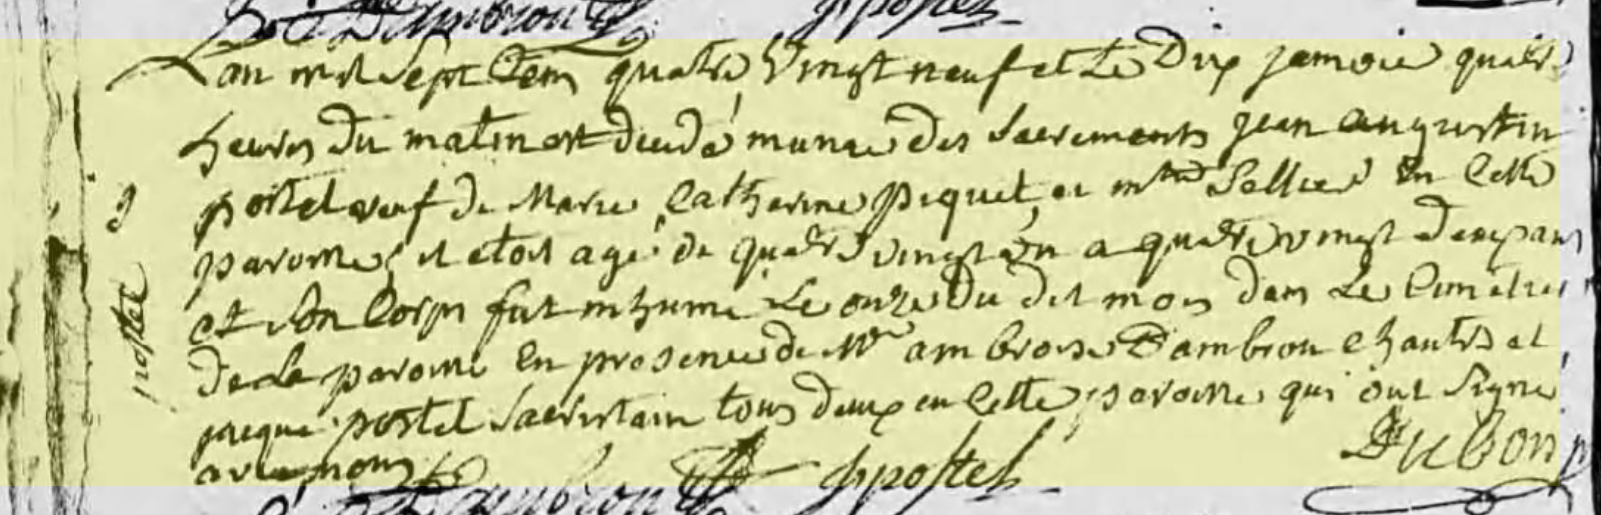 Dambron jj postel
Lan mil sept Cens quatre Vingt neuf et Le Dix janvie quatre
heures Du matin est decedé munie des sacrements jean augustin
postel veuf de Marie Catherine piquet, et mtre Sellier En Cette
paroisse, il etoit agé de quatre vingt un a quatre vingt deux ans
et son Corps fut inhumé Le onze Du dit mois dans Le Cimetier
De la paroisse En presence de Mre ambroise Dambron Chantre et
jacque postel sacristain tous deux en Cette paroisse qui ont signe
avec nous
Dambron jj postel Dubon
3
postel